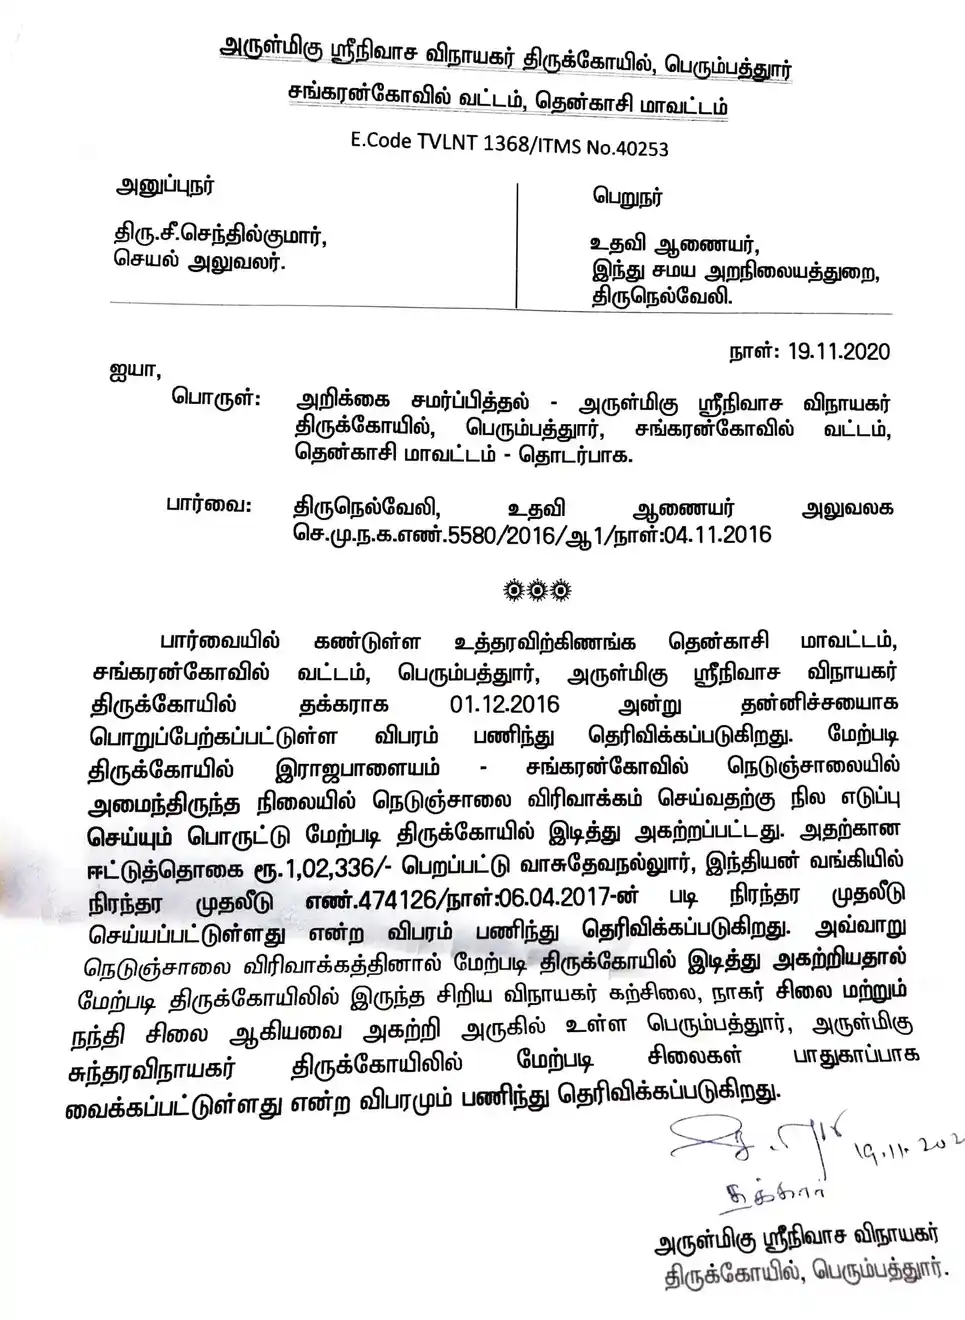 அருள்மிகு ஸ்ரீநிவாச விநாயகர் திருக்கோயில், பெரும்பத்தூர்
சங்கரன்கோவில் வட்டம், தென்காசி மாவட்டம்
E.Code TVLNT 1368/ITMS No.40253
அனுப்புநர்
திரு.சீ.செந்தில்குமார்,
செயல் அலுவலர்.
பெறுநர்
உதவி ஆணையர்,
இந்து சமய அறநிலையத்துறை,
திருநெல்வேலி.
நாள்: 19.11.2020
ஐயா,
பொருள்: அறிக்கை சமர்ப்பித்தல் - அருள்மிகு ஸ்ரீநிவாச விநாயகர்
திருக்கோயில், பெரும்பத்தூர், சங்கரன்கோவில் வட்டம்,
தென்காசி மாவட்டம் - தொடர்பாக.
பார்வை: திருநெல்வேலி, உதவி ஆணையர் அலுவலக
செ.மு.ந.க.எண்.5580/2016/ஆ1/நாள்:04.11.2016
பார்வையில் கண்டுள்ள உத்தரவிற்கிணங்க தென்காசி மாவட்டம்,
சங்கரன்கோவில் வட்டம், பெரும்பத்தூர், அருள்மிகு ஸ்ரீநிவாச விநாயகர்
திருக்கோயில் தக்கராக 01.12.2016 அன்று தன்னிச்சையாக
பொறுப்பேற்கப்பட்டுள்ள விபரம் பணிந்து தெரிவிக்கப்படுகிறது. மேற்படி
திருக்கோயில் இராஜபாளையம் - சங்கரன்கோவில் நெடுஞ்சாலையில்
அமைந்திருந்த நிலையில் நெடுஞ்சாலை விரிவாக்கம் செய்வதற்கு நில எடுப்பு
செய்யும் பொருட்டு மேற்படி திருக்கோயில் இடித்து அகற்றப்பட்டது. அதற்கான
ஈட்டுத்தொகை ரூ.1,02,336/- பெறப்பட்டு வாசுதேவநல்லூர், இந்தியன் வங்கியில்
நிரந்தர முதலீடு எண்.474126/நாள்:06.04.2017-ன் படி நிரந்தர முதலீடு
செய்யப்பட்டுள்ளது என்ற விபரம் பணிந்து தெரிவிக்கப்படுகிறது. அவ்வாறு
நெடுஞ்சாலை விரிவாக்கத்தினால் மேற்படி திருக்கோயில் இடித்து அகற்றியதால்
மேற்படி திருக்கோயிலில் இருந்த சிறிய விநாயகர் கற்சிலை, நாகர் சிலை மற்றும்
நந்தி சிலை ஆகியவை அகற்றி அருகில் உள்ள பெரும்பத்தூர், அருள்மிகு
சுந்தரவிநாயகர் திருக்கோயிலில் மேற்படி சிலைகள் பாதுகாப்பாக
வைக்கப்பட்டுள்ளது என்ற விபரமும் பணிந்து தெரிவிக்கப்படுகிறது.
19.11.202
தக்கார்
அருள்மிகு ஸ்ரீநிவாச விநாயகர்
திருக்கோயில், பெரும்பத்தூர்.